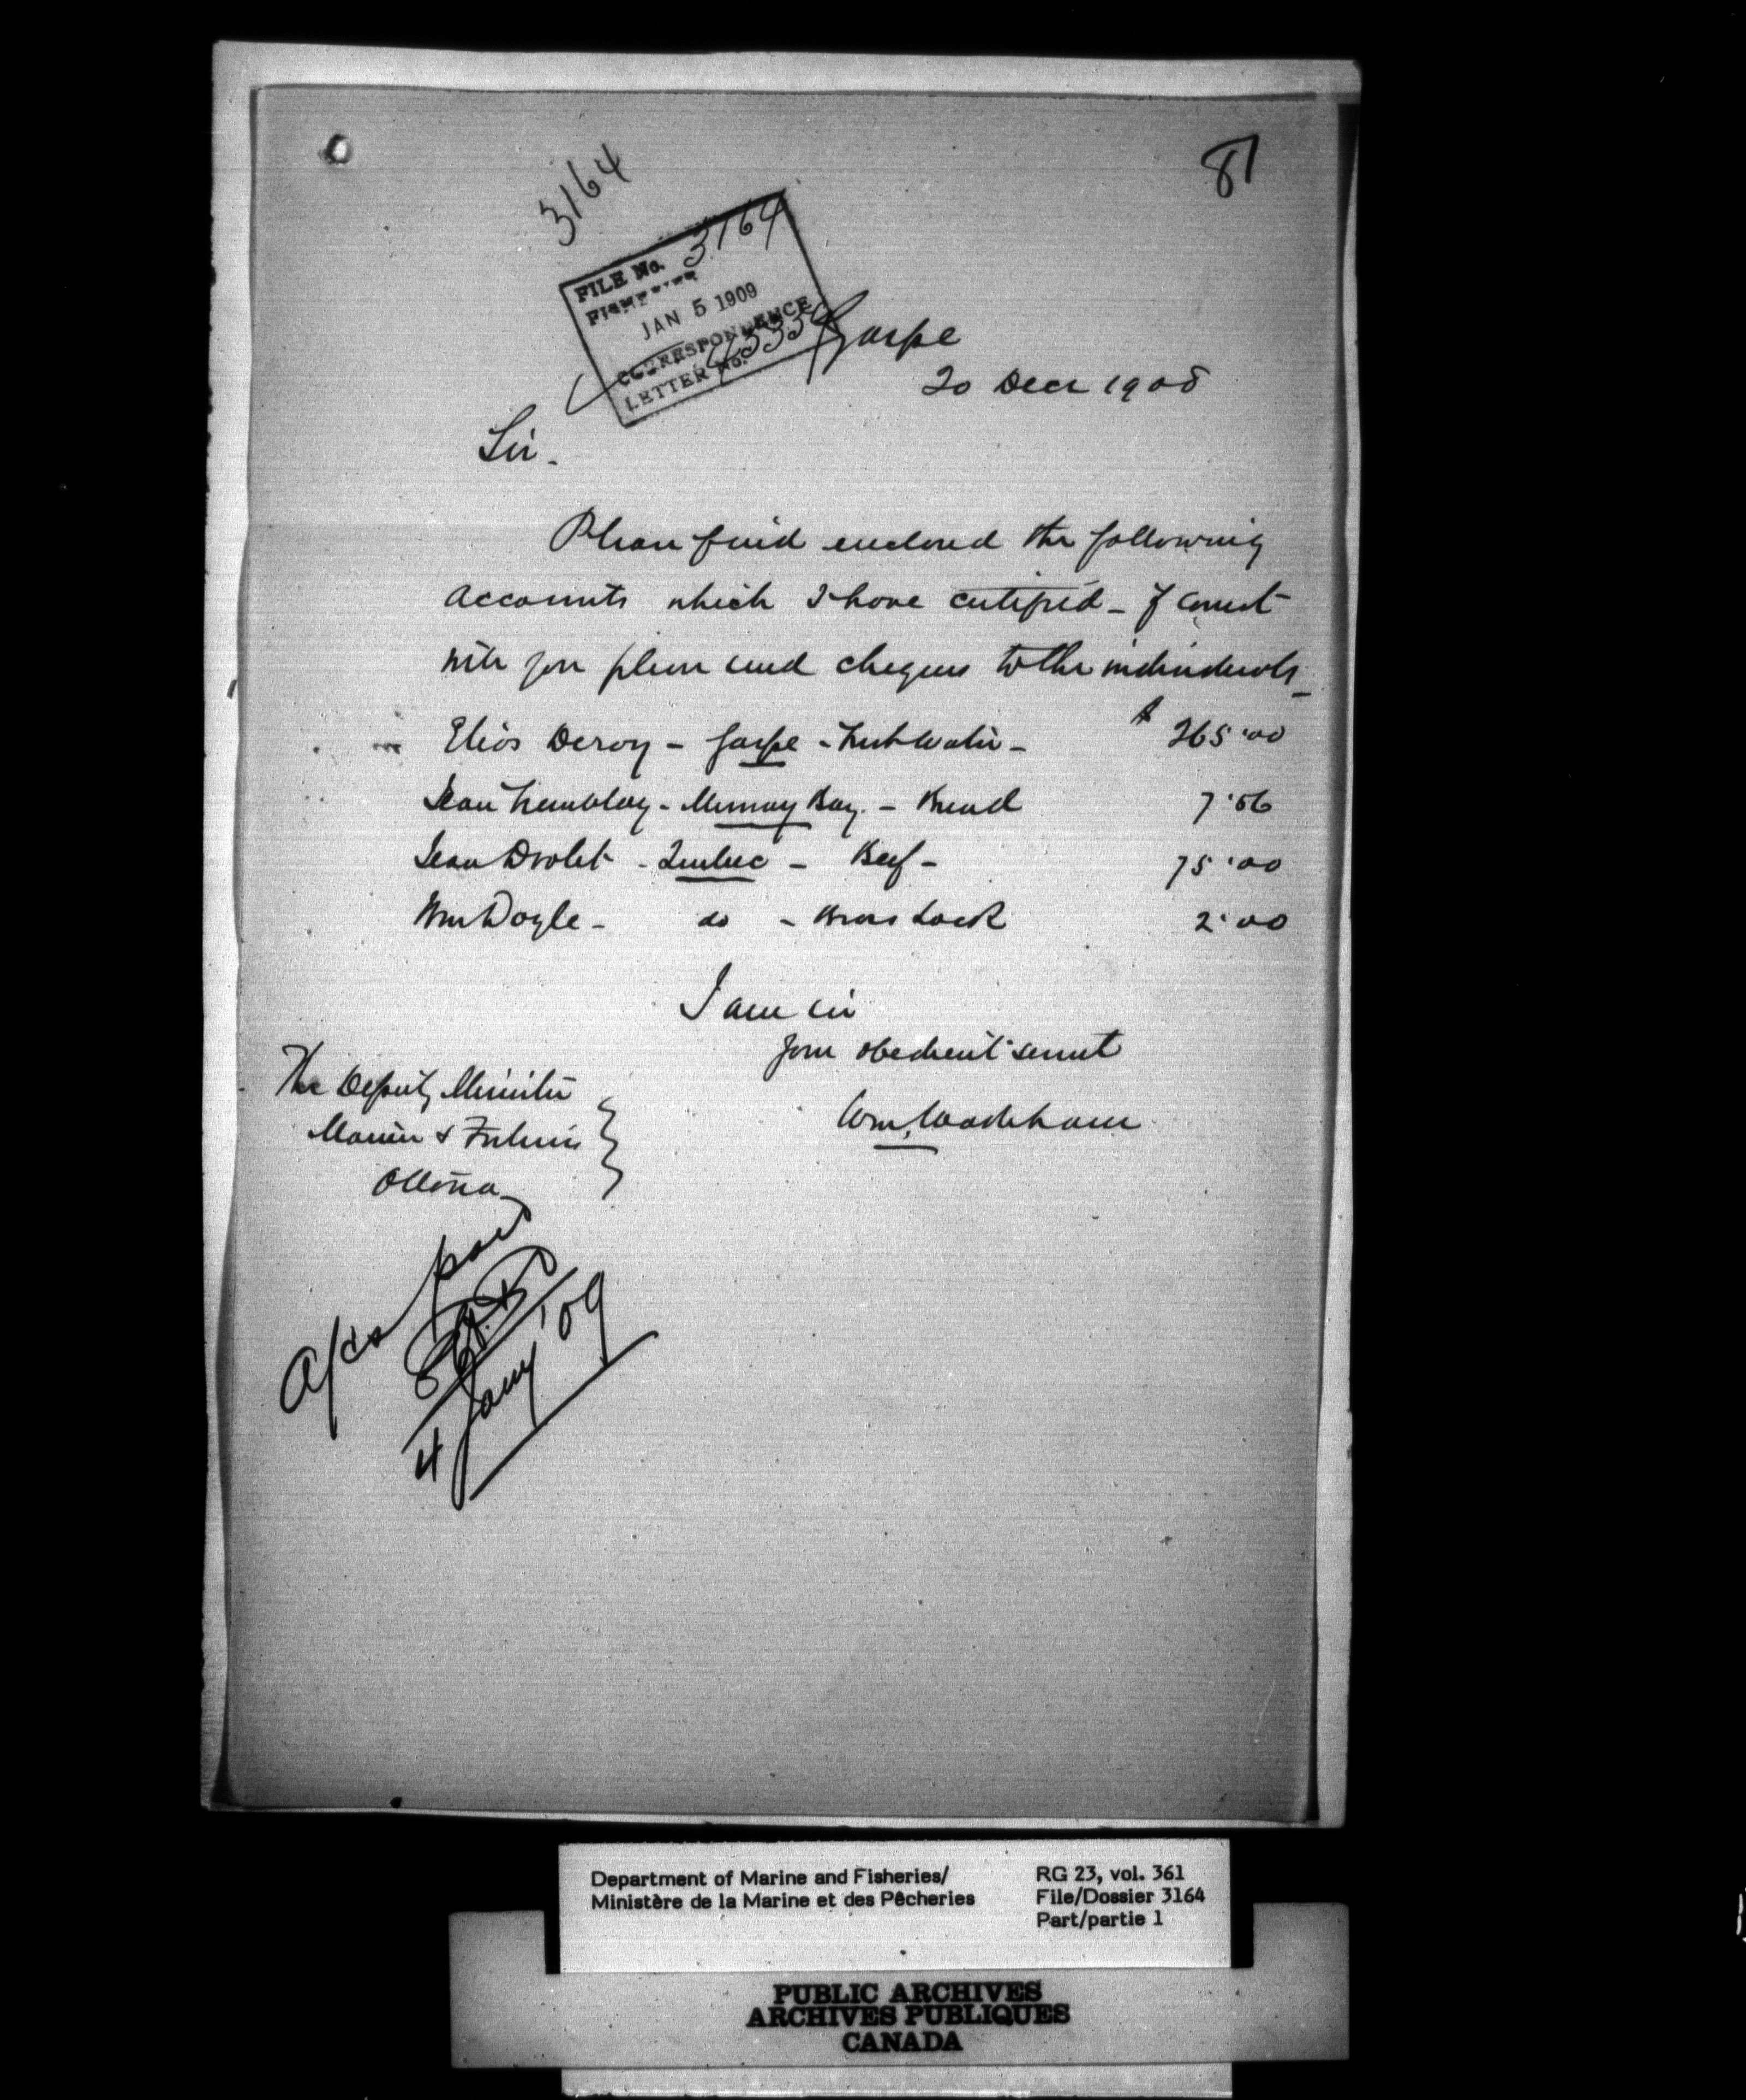 81
3164
FILE No. 3164
FISHERIES
JAN 5 1909
CORRESPONDENCE
LETTER No.
Gaspe
20 Decr 1908
Sir.
Please find enclosed the following
accounts which I have certified - If correct
will you please send cheques to the individuals -
Elias Deroy - Gaspe - Fresh Water - $ 265.00
Jean Tremblay - Murray Bay. - Bread 7.56
Jean Drolet - Quebec - Beef - 75.00
Wm Doyle - do - Brass Lock 2.00
I am sir
your obedient servt
Wm. Wakeham
The Deputy Minister
Marine & Fisheries
Ottawa
a/cs paid
4 Jany '09
Department of Marine and Fisheries/
Ministère de la Marine et des Pêcheries
RG 23, vol. 361
File/Dossier 3164
Part/partie 1
PUBLIC ARCHIVES
ARCHIVES PUBLIQUES
CANADA